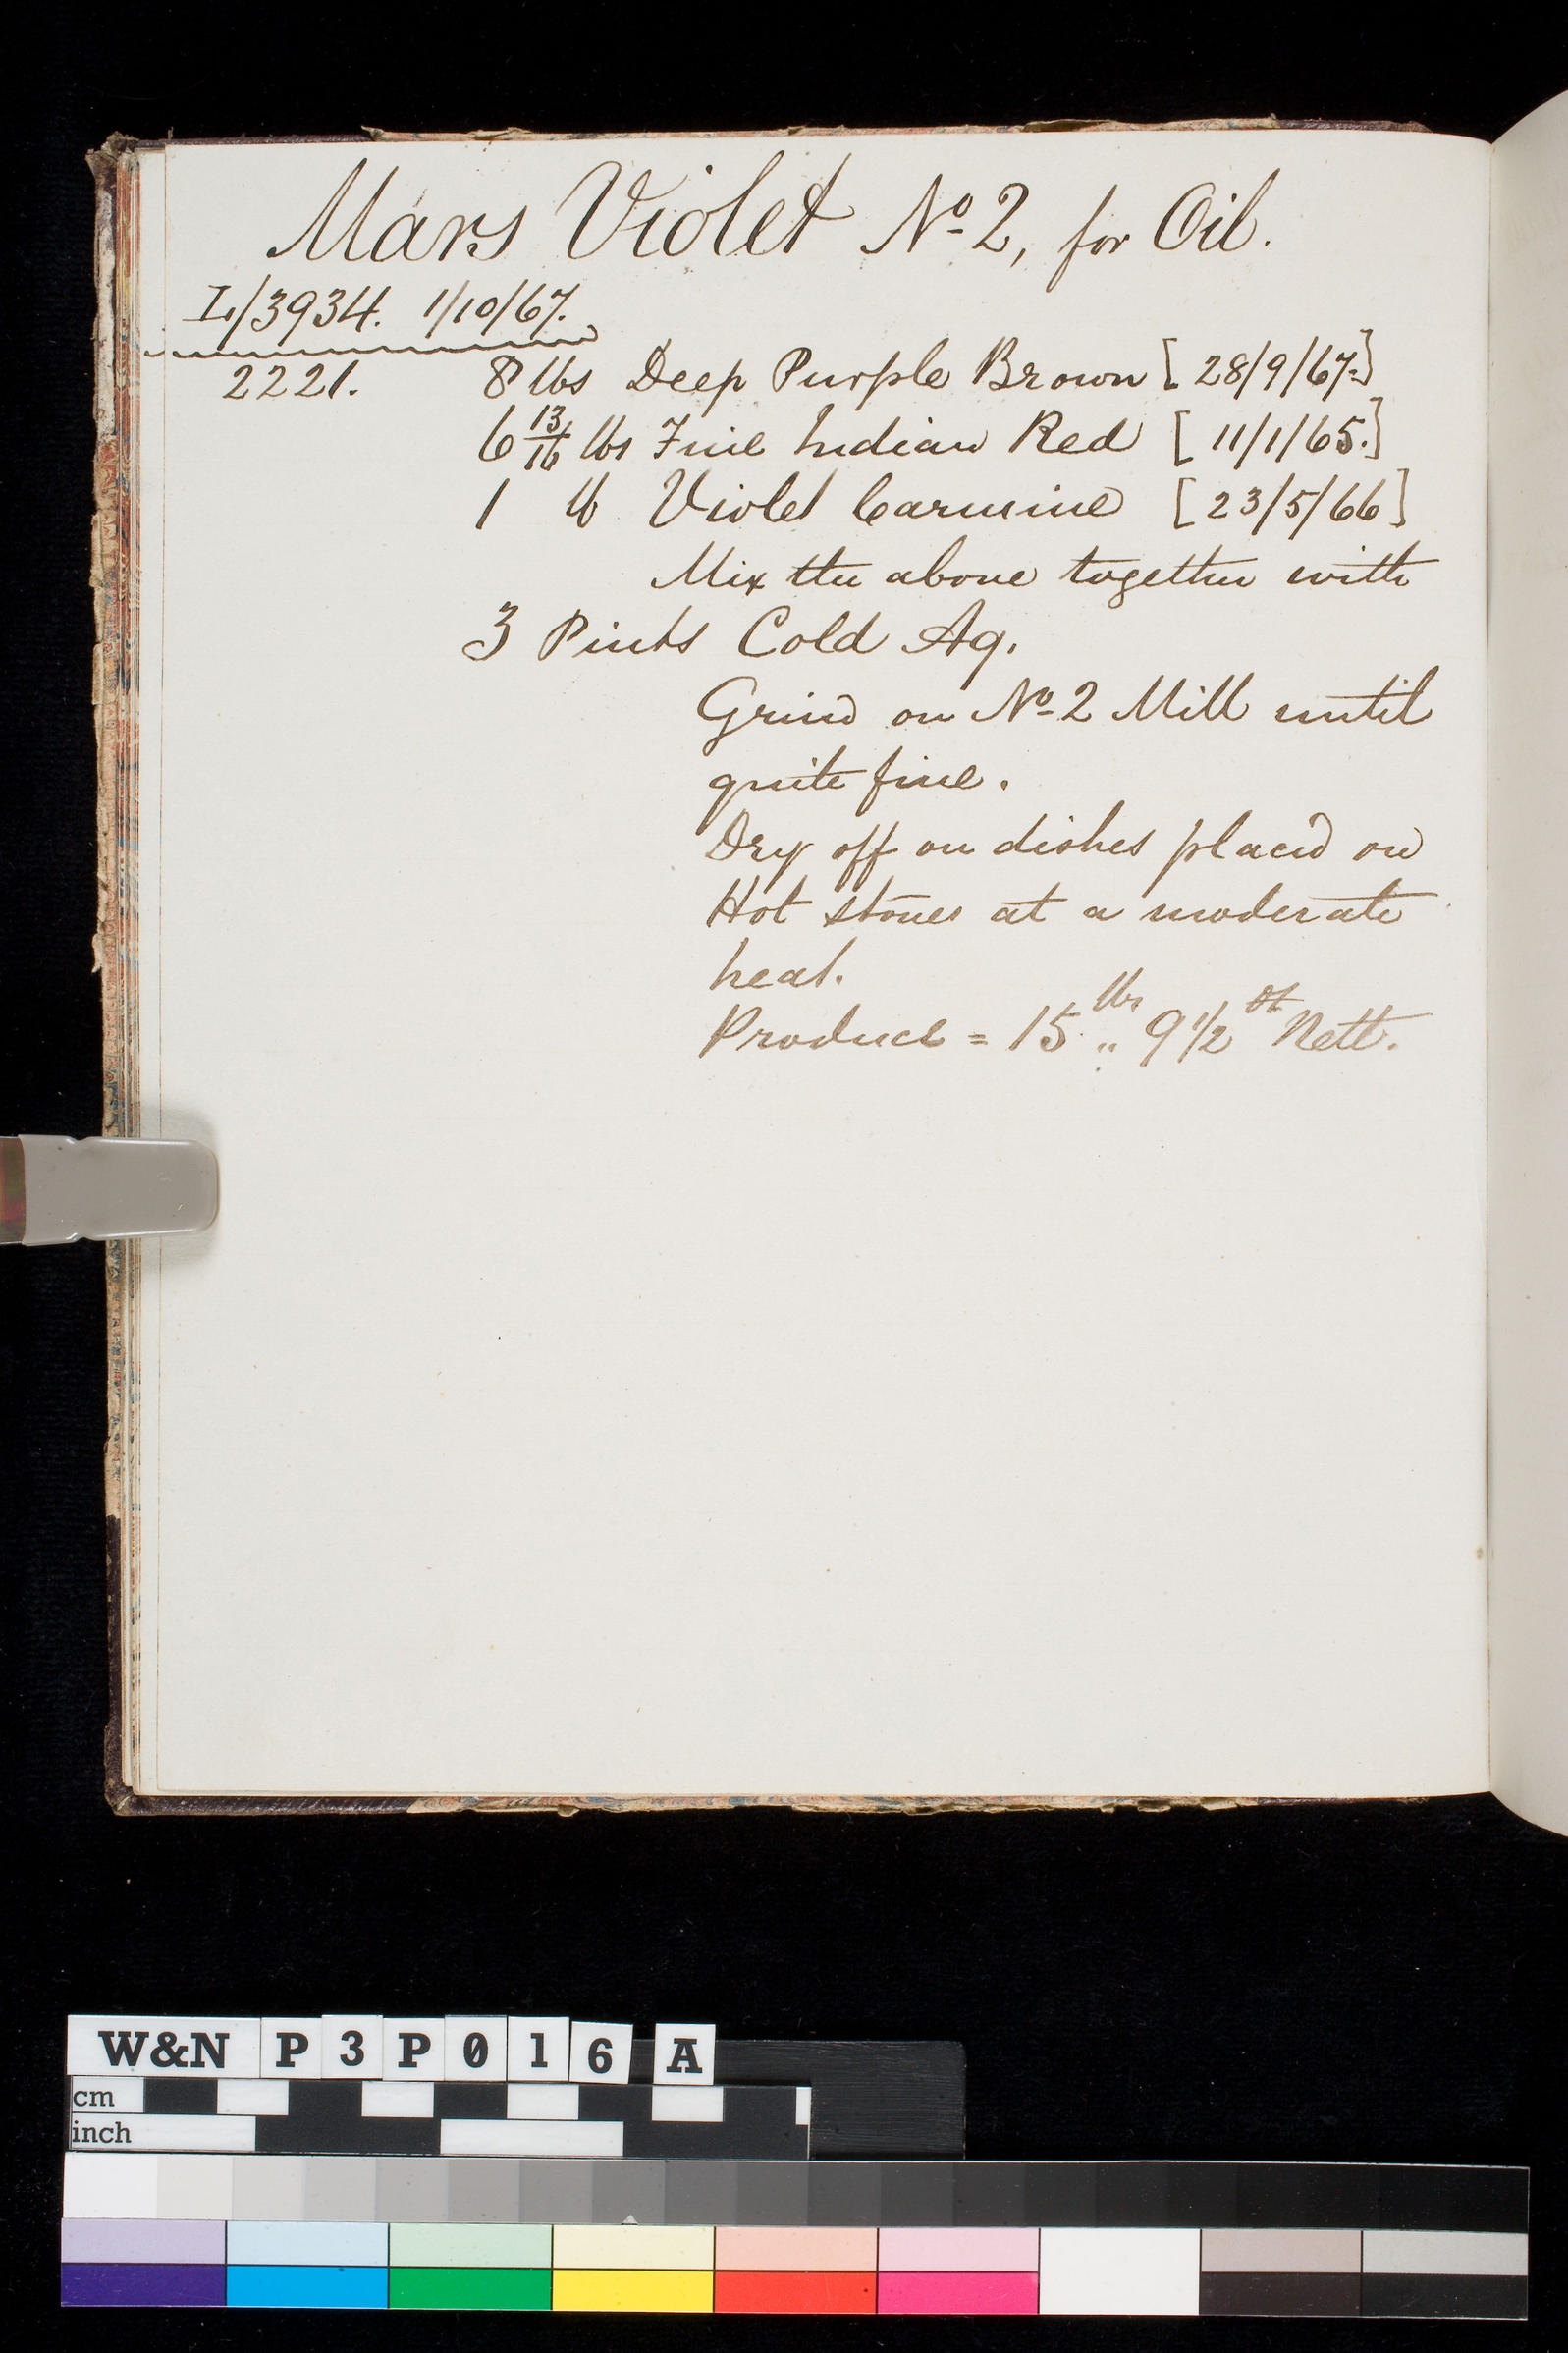 Mars Violet No 2, for Oil.
L/3934. 1/10/67.
2221. 8 lbs Deep Purple Brown [28/9/67.]
6 13/16 lbs Fine Indian Red [11/1/65.]
1 lb Violet Carmine [23/5/66]
Mix the above together with
3 Pints Cold Aq.
Grind on No 2 Mill until
quite fine.
Dry off on dishes placed on
Hot stones at a moderate
heat.
Produce = 15 lbs „ 9 1/2 oz Nett.
W&N P3P016A
cm
inch